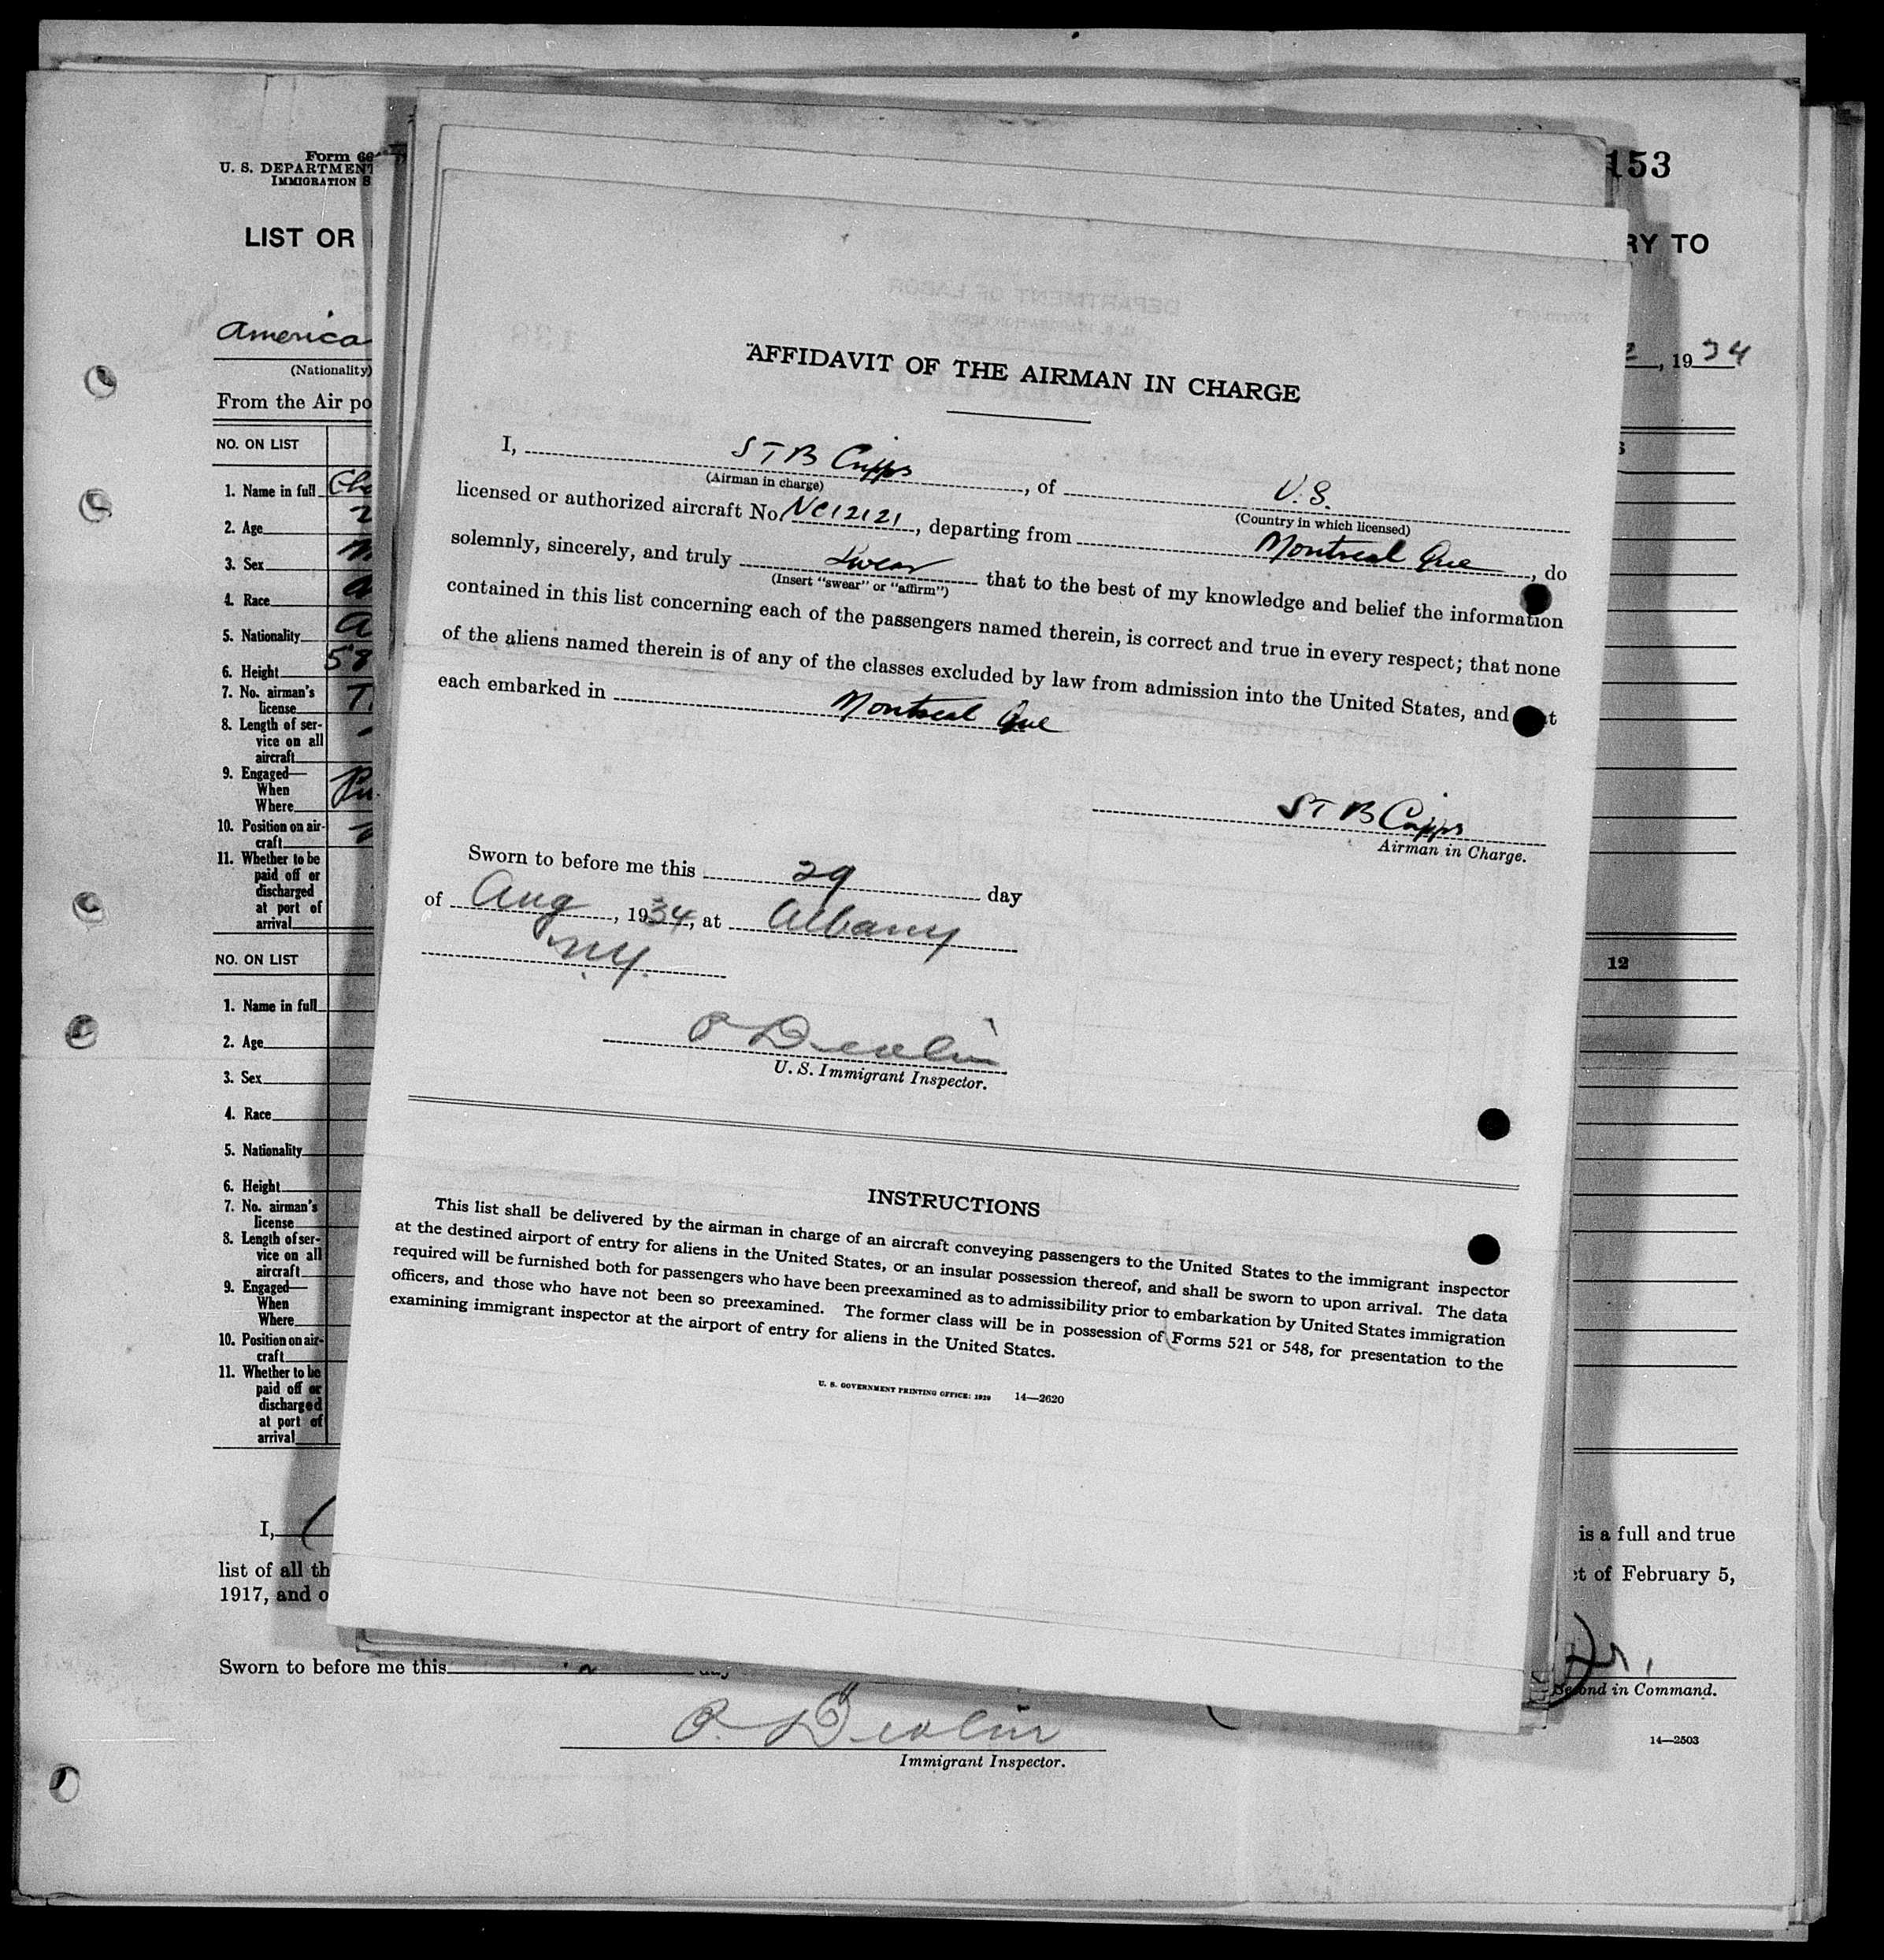 Form
U. S. DEPARTMENT
IMMIGRATION S
153
LIST OR
RY TO
America
(Nationality)
, 1934
From the Air po
NO. ON LIST
1. Name in full
2. Age
3. Sex
4. Race
5. Nationality
6. Height 58
7. No. airman's
license
8. Length of ser-
vice on all
aircraft
9. Engaged—
When
Where
10. Position on air-
craft
11. Whether to be
paid off or
discharged
at port of
arrival
NO. ON LIST
12
1. Name in full
2. Age
3. Sex
4. Race
5. Nationality
6. Height
7. No. airman's
license
8. Length of ser-
vice on all
aircraft
9. Engaged—
When
Where
10. Position on air-
craft
11. Whether to be
paid off or
discharged
at port of
arrival
I,
is a full and true
list of all th
ct of February 5,
1917, and o
Sworn to before me this
Second in Command.
P. Devlin
Immigrant Inspector.
14—2503
AFFIDAVIT OF THE AIRMAN IN CHARGE
I, S T B Cripps, of U.S.
(Airman in charge)
(Country in which licensed)
licensed or authorized aircraft No. NC12121, departing from Montreal Que, do
solemnly, sincerely, and truly swear that to the best of my knowledge and belief the information
(Insert "swear" or "affirm")
contained in this list concerning each of the passengers named therein, is correct and true in every respect; that none
of the aliens named therein is of any of the classes excluded by law from admission into the United States, and t
each embarked in Montreal Que
S T B Cripps
Airman in Charge.
Sworn to before me this 29 day
of Aug, 1934, at Albany
N.Y.
P Devlin
U. S. Immigrant Inspector.
INSTRUCTIONS
This list shall be delivered by the airman in charge of an aircraft conveying passengers to the United States to the immigrant inspector
at the destined airport of entry for aliens in the United States, or an insular possession thereof, and shall be sworn to upon arrival. The data
required will be furnished both for passengers who have been preexamined as to admissibility prior to embarkation by United States immigration
officers, and those who have not been so preexamined. The former class will be in possession of Forms 521 or 548, for presentation to the
examining immigrant inspector at the airport of entry for aliens in the United States.
U. S. GOVERNMENT PRINTING OFFICE: 1929 14—2620